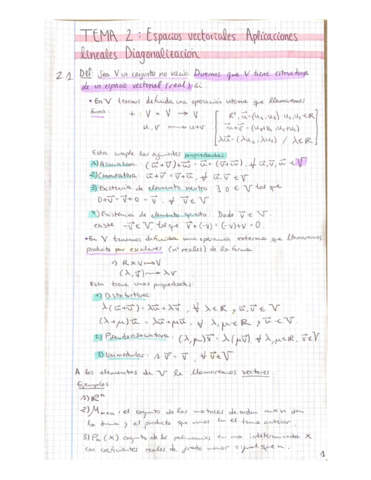 TEMA 2: Espacios vectoriales. Aplicaciones
lineales. Diagonalización
2.1 Def: Sea V un conjunto no vacío. Diremos que V tiene estructura
de un espacio vectorial (real) si
• En V tenemos definida una operación interna que llamaremos
suma: + : V × V → V
u, v → u+v
[ R², u = (u₁, u₂) u₁, u₂ ∈ R
u+v = (u₁+v₁, u₂+v₂)
λu = (λu₁, λu₂) / λ ∈ R ]
Esta cumple las siguientes propiedades:
1) Asociativa: (u+v)+w = u+(v+w), ∀ u, v, w ∈ V
2) Conmutativa: u+v = v+u, ∀ u, v ∈ V
3) Existencia de elemento neutro: ∃ 0 ∈ V tal que
0+v = v+0 = v, ∀ v ∈ V
4) Existencia de elemento opuesto. Dado v ∈ V.
existe -v ∈ V, tal que v+(-v) = (-v)+v = 0.
• En V tenemos definida una operación externa que llamaremos
producto por escalares (nº reales) de la forma
·) R × V → V
(λ, v) → λv
Esta tiene unas propiedades:
1) Distributiva:
λ(u+v) = λu + λv, ∀ λ ∈ R, u, v ∈ V
(λ+μ)u = λu + μu, ∀ λ, μ ∈ R y u ∈ V.
2) Pseudoasociativa: (λ, μ)v = λ(μv) ∀ λ, μ ∈ R, v ∈ V
3) Unimodular: 1·v = v, ∀ v ∈ V
A los elementos de V le llamaremos vectores
Ejemplos
1) Rⁿ
2) Mmxn, el conjunto de las matrices de orden mxn con
la suma y el producto que vimos en el tema anterior.
3) Pn(X) conjunto de los polinomios en una indeterminada X
con coeficientes reales de grado menor o igual que n.
1